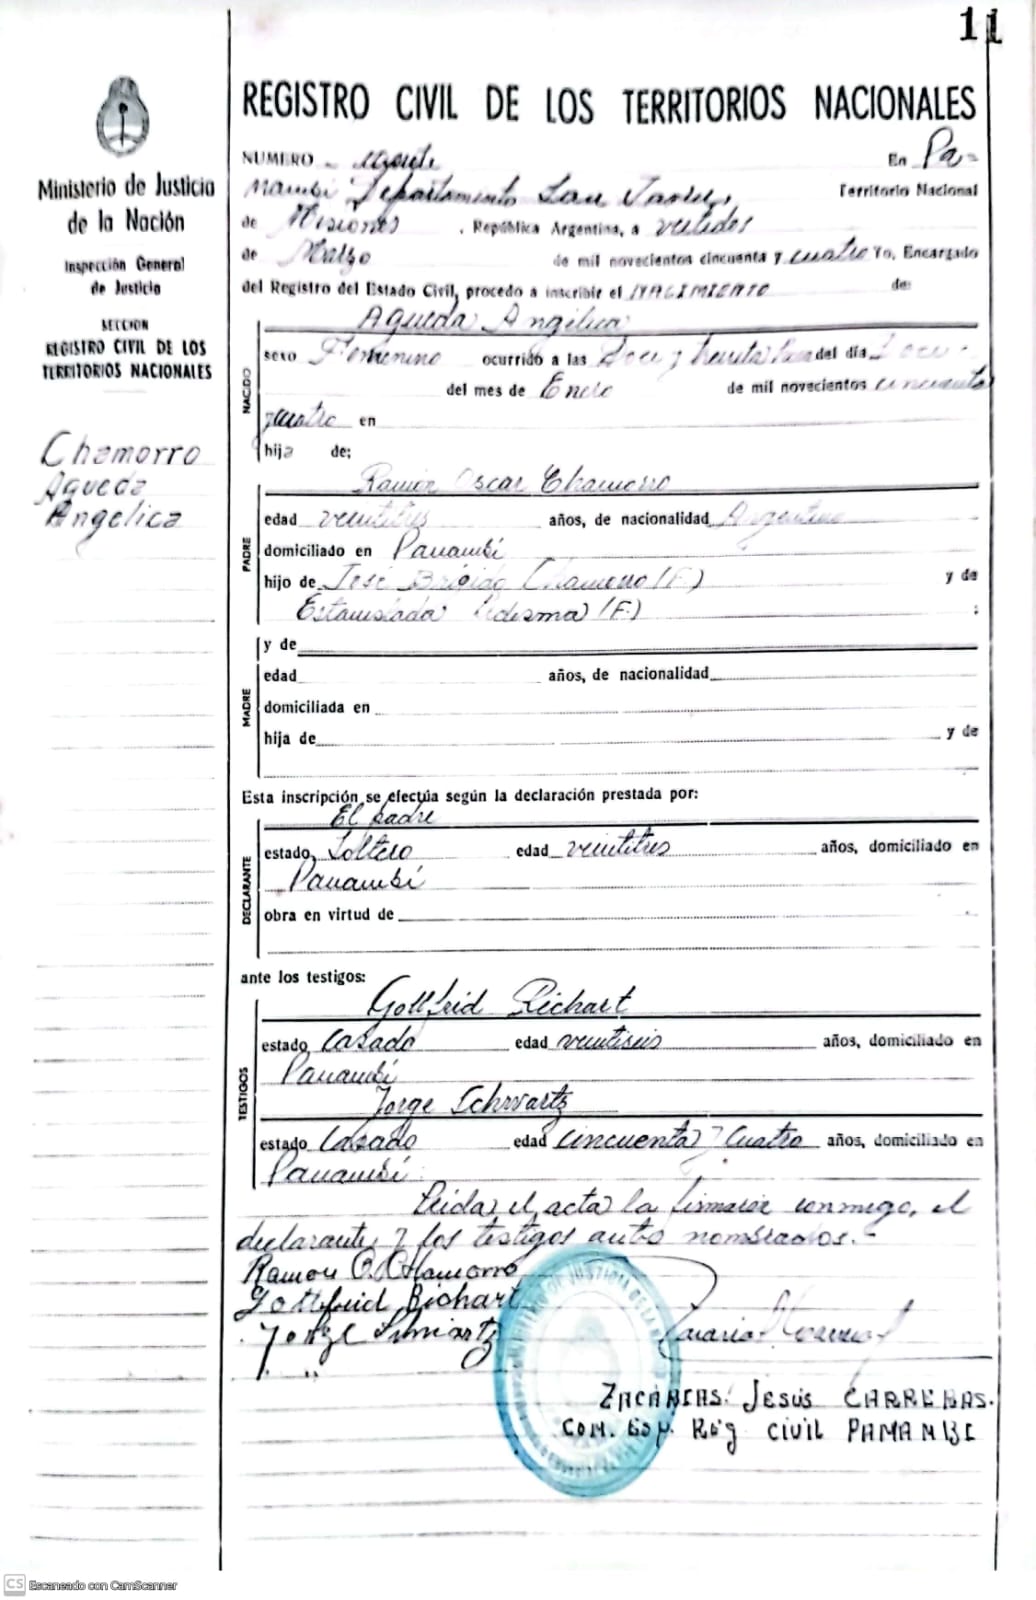 11
Ministerio de Justicia
de la Nación
Inspección General
de Justicia
SECCION
REGISTRO CIVIL DE LOS
TERRITORIOS NACIONALES
Chamorro
Agueda
Angélica
REGISTRO CIVIL DE LOS TERRITORIOS NACIONALES
NUMERO En Pa-
nambí Departamento San Javier, Territorio Nacional
de Misiones , República Argentina, a
de Marzo de mil novecientos cincuenta y cuatro Yo, Encargado
del Registro del Estado Civil, procedo a inscribir el NACIMIENTO de:
NACIDO
Agueda Angélica
sexo Femenino ocurrido a las Doce y treinta del día
del mes de Enero de mil novecientos cincuenta
y cuatro en
hija de;
PADRE
Ramón Oscar Chamorro
edad veintitres años, de nacionalidad Argentino
domiciliado en Panambí
hijo de José Chamorro (F) y de
Estanislada Ledesma (F) ;
MADRE
y de
edad años, de nacionalidad
domiciliada en
hija de y de
Esta inscripción se efectúa según la declaración prestada por:
DECLARANTE
El padre
estado Soltero edad veintitres años, domiciliado en
Panambí
obra en virtud de
ante los testigos:
TESTIGOS
Gottfrid Richart
estado Casado edad veintiseis años, domiciliado en
Panambí
Jorge Schwartz
estado Casado edad cincuenta y cuatro años, domiciliado en
Panambí
Leida el acta la firmaron conmigo, el
declarante y los testigos nombrados.-
Ramon O. Chamorro
Gottfrid Richart
Jorge
JESUS CARRERAS.
Reg CIVIL PANAMBI
CS Escaneado con CamScanner